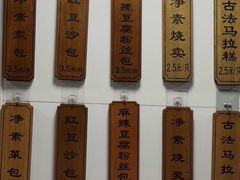 净素菜包
3.5元/只
红豆沙包
3.5元/只
麻辣豆腐粉丝包
3.5元/只
净素烧卖
2.5元/只
古法马拉糕
2.5元/只
净素菜包
红豆沙包
麻辣豆腐粉丝包
净素烧卖
古法马拉